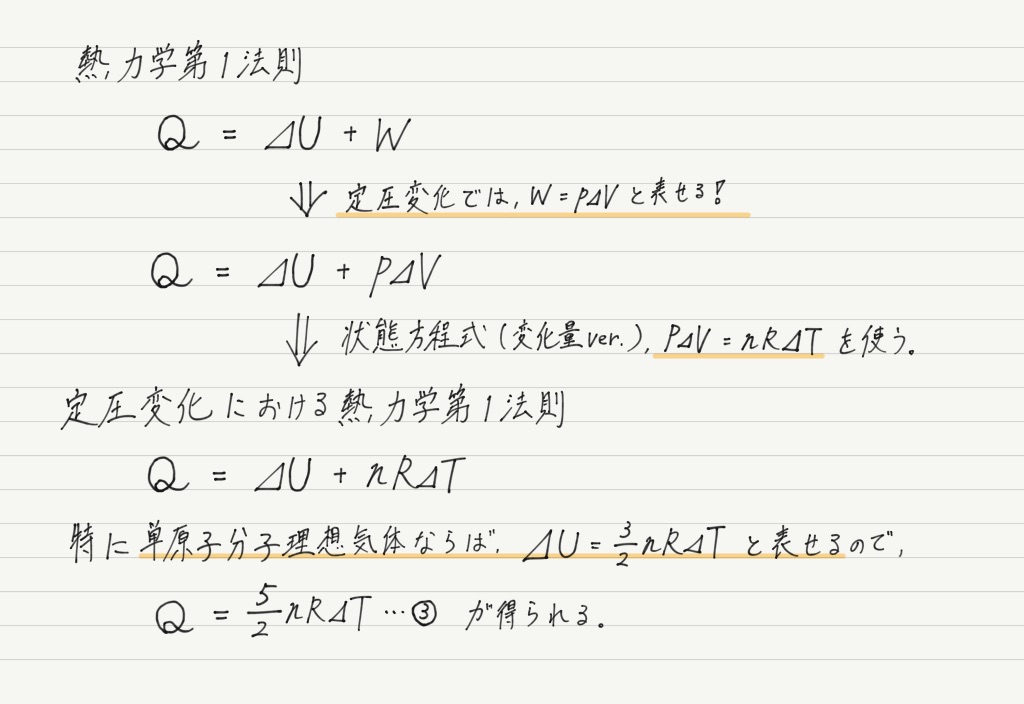 熱力学第1法則
Q = ΔU + W
⇓ 定圧変化では, W = pΔV と表せる!
Q = ΔU + pΔV
⇓ 状態方程式 (変化量ver.), PΔV = nRΔT を使う。
定圧変化における熱力学第1法則
Q = ΔU + nRΔT
特に単原子分子理想気体ならば, ΔU = 3/2 nRΔT と表せるので,
Q = 5/2 nRΔT … ③ が得られる。